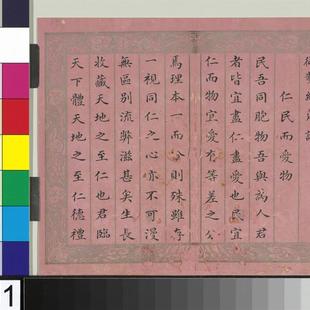 仁民而愛物
民吾同胞物吾與為人君
者皆宜盡仁盡愛也民宜
仁而物宜愛有等差之分
焉理本一而分則殊雖存
一視同仁之心亦不可漫
無區別流弊滋甚矣生長
收藏天地之至仁也君臨
天下體天地之至仁德禮
1